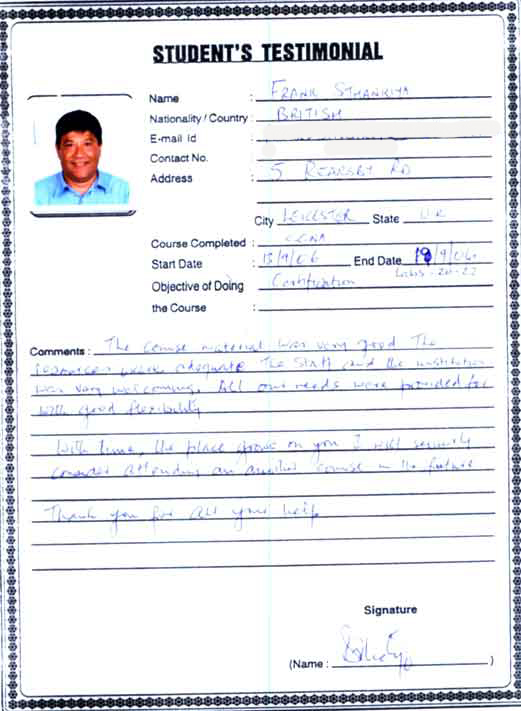 STUDENT'S TESTIMONIAL
Name : FRANK
Nationality / Country : BRITISH
E-mail Id :
Contact No. :
Address : 5 REARSBY RD
City LEICESTER State U.K
Course Completed : CCNA
Start Date : 13/9/06 End Date 19/9/06
Objective of Doing : Certification Labs - 20-22
the Course :
Comments : The course material was very good The
were adequate The Staff and the institution
was very welcoming. All our needs were provided for
with good flexibility
With time, the place grows on you I will seriously
consider attending an another course in the future
Thank you for all your help
Signature
(Name : )